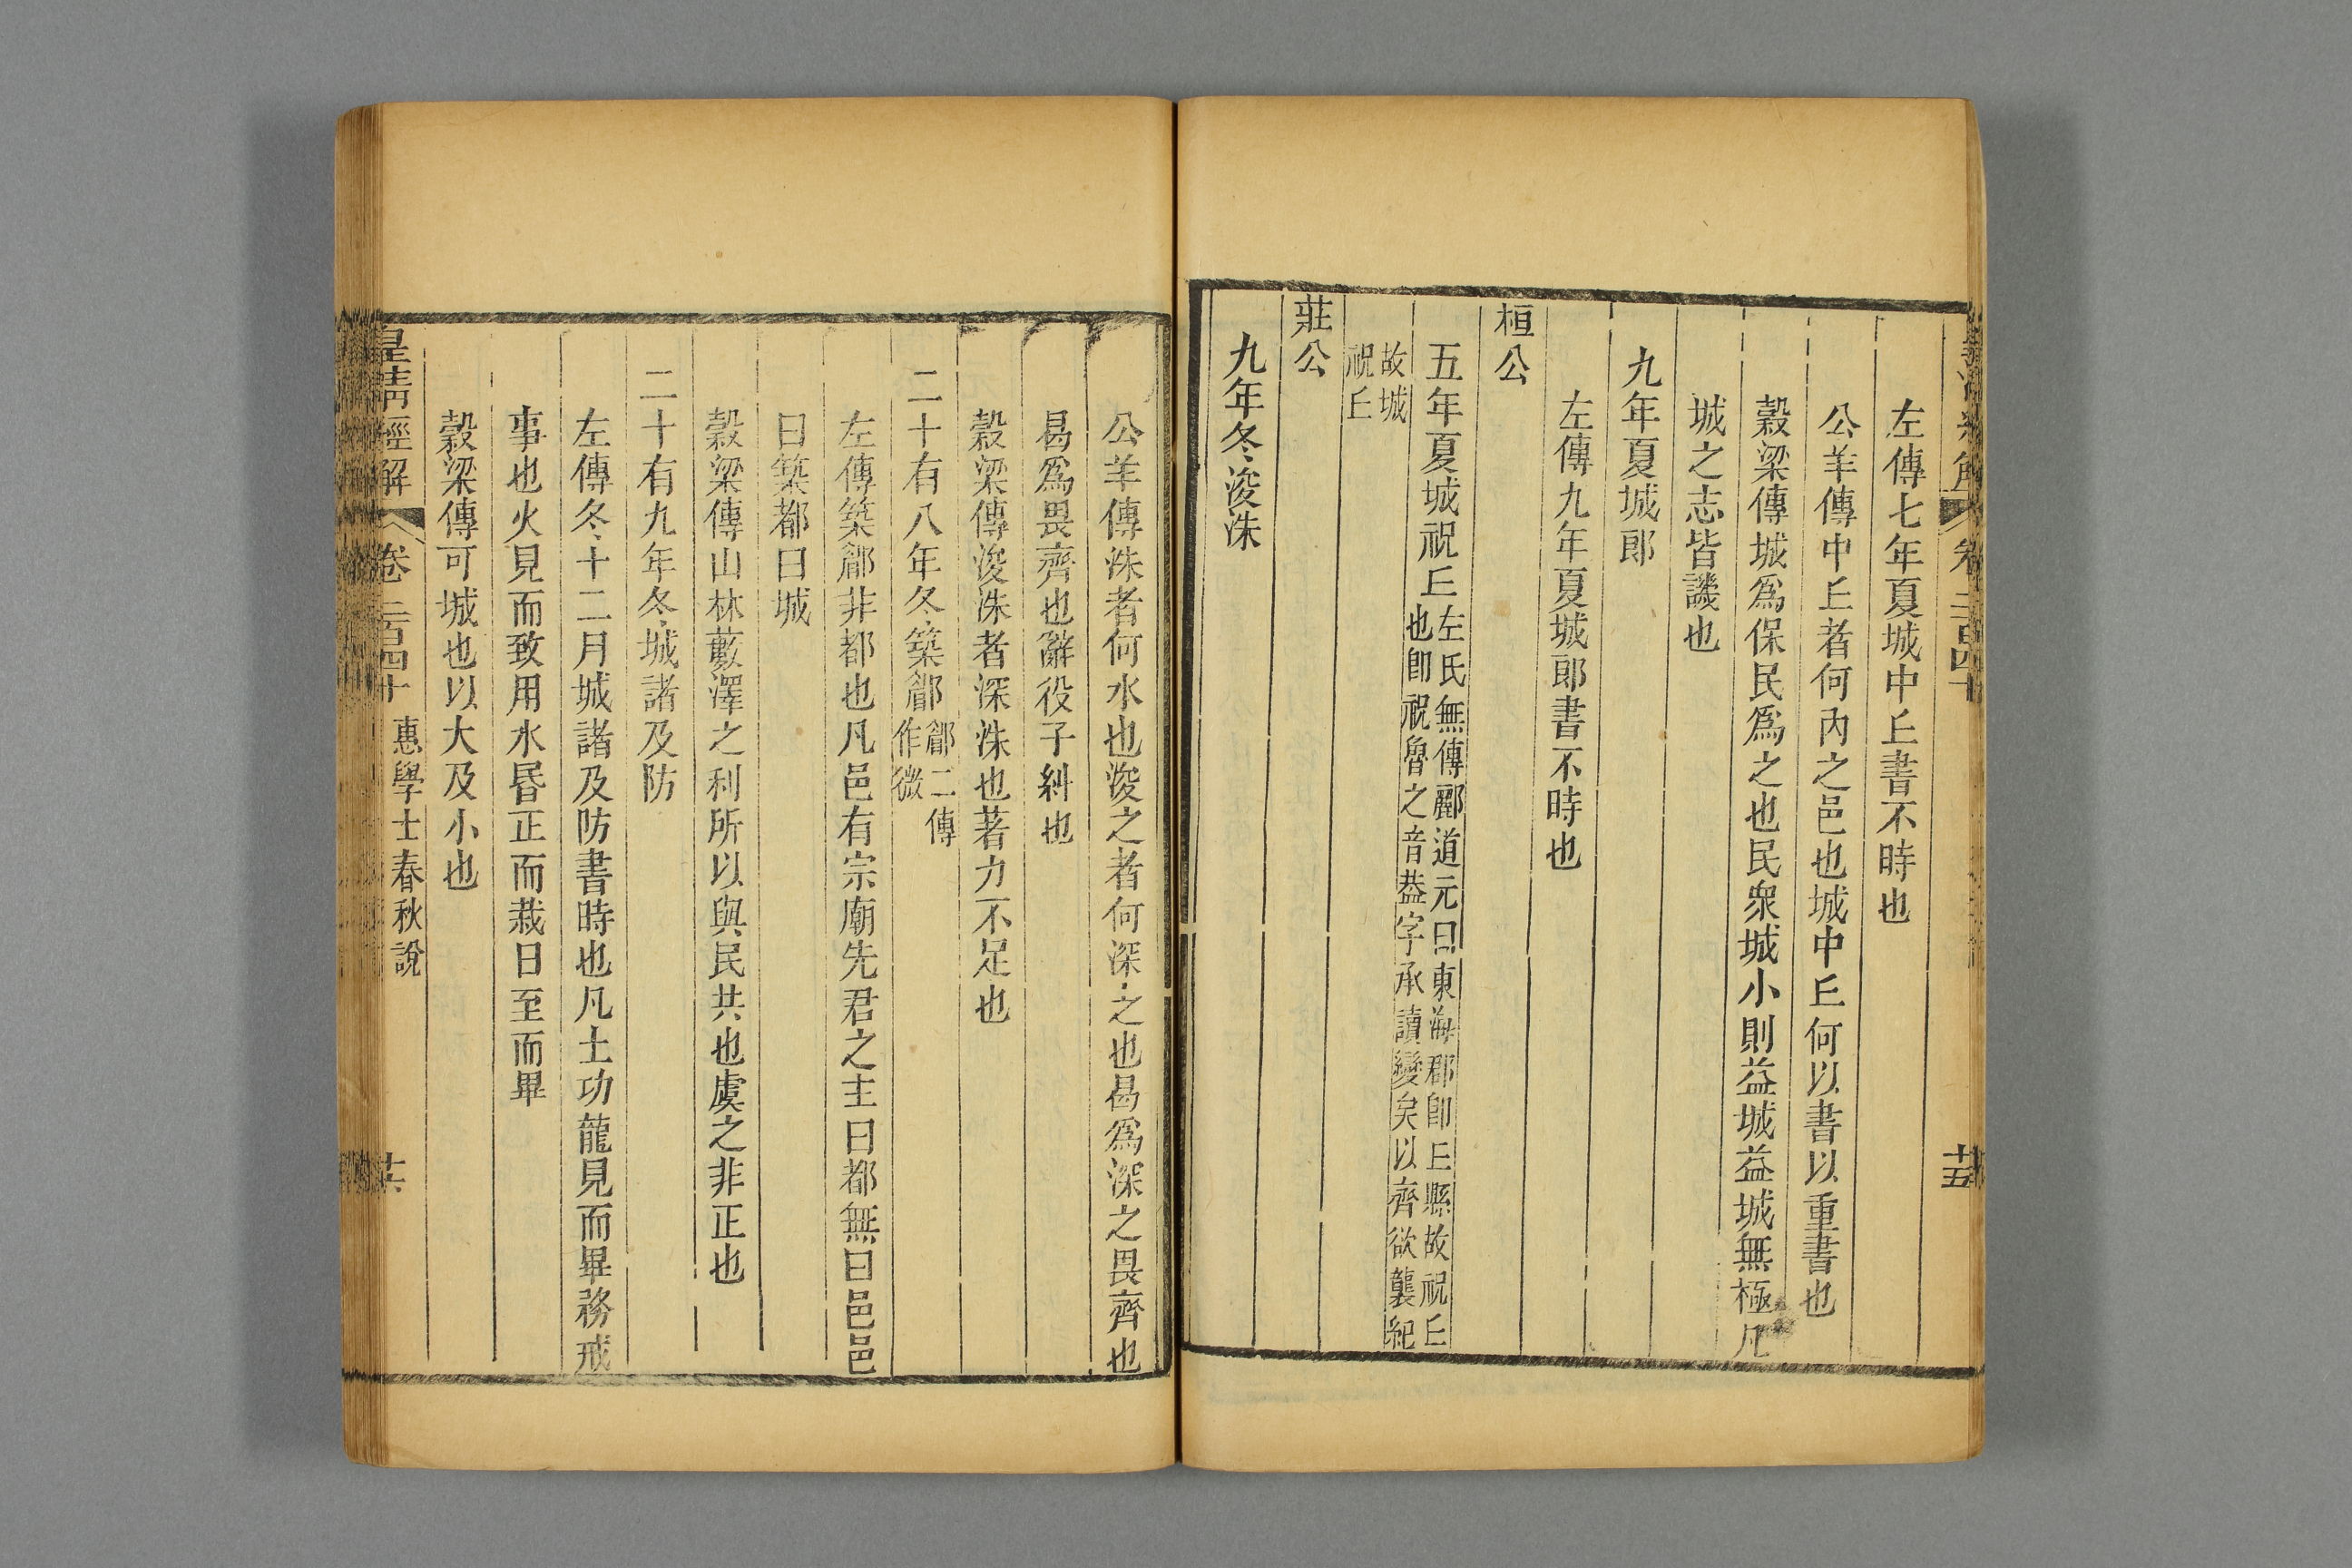 左傳七年夏城中丘書不時也
公羊傳中丘者何內之邑也城中丘何以書以重書也
穀梁傳城爲保民爲之也民衆城小則益城益城無極凡
城之志皆譏也
九年夏城郎
左傳九年夏城郎書不時也
桓公
五年夏城祝丘左氏無傳酈道元曰東海郡卽丘縣故祝丘
也卽祝魯之音蓋字承讀變矣以齊欲襲紀
故城
祝丘
莊公
九年冬浚洙
公羊傳洙者何水也浚之者何深之也曷爲深之畏齊也
曷爲畏齊也辭役子糾也
穀梁傳浚洙者深洙也著力不足也
二十有八年冬築郿郿二傳
作微
左傳築郿非都也凡邑有宗廟先君之主曰都無曰邑邑
曰築都曰城
穀梁傳山林藪澤之利所以與民共也虞之非正也
二十有九年冬城諸及防
左傳冬十二月城諸及防書時也凡土功龍見而畢務戒
事也火見而致用水昏正而栽日至而畢
穀梁傳可城也以大及小也
皇淸經解 卷二百四十 惠學士春秋說 十六